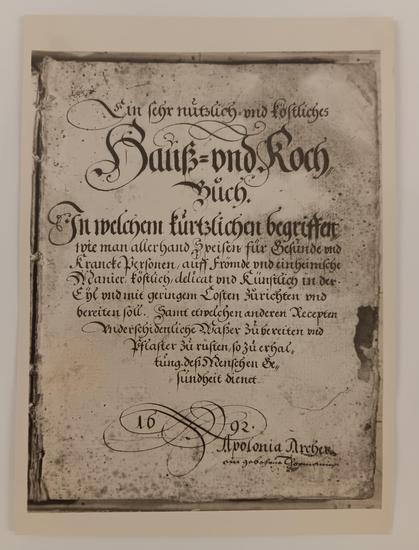 Ein sehr nützlich- und köstliches
Hauß= und Koch
Buch.
In welchem kürtzlichen begriffen
wie man aller hand Speisen für Gesunde und
Krancke Personen, auff Frömde und einheimische
Manier, köstlich, delicat und Künstlich in der
Eyl und mit geringem Costen zürichten und
bereiten söll. Samt etwelchen anderen Recepten
Underschidenliche Waßer zübereiten und
Pflaster zü rüsten, so zü erhal=
tung deß Menschen Ge=
sündheit dienet
1692.
Apolonia Archer
ein gebohrne